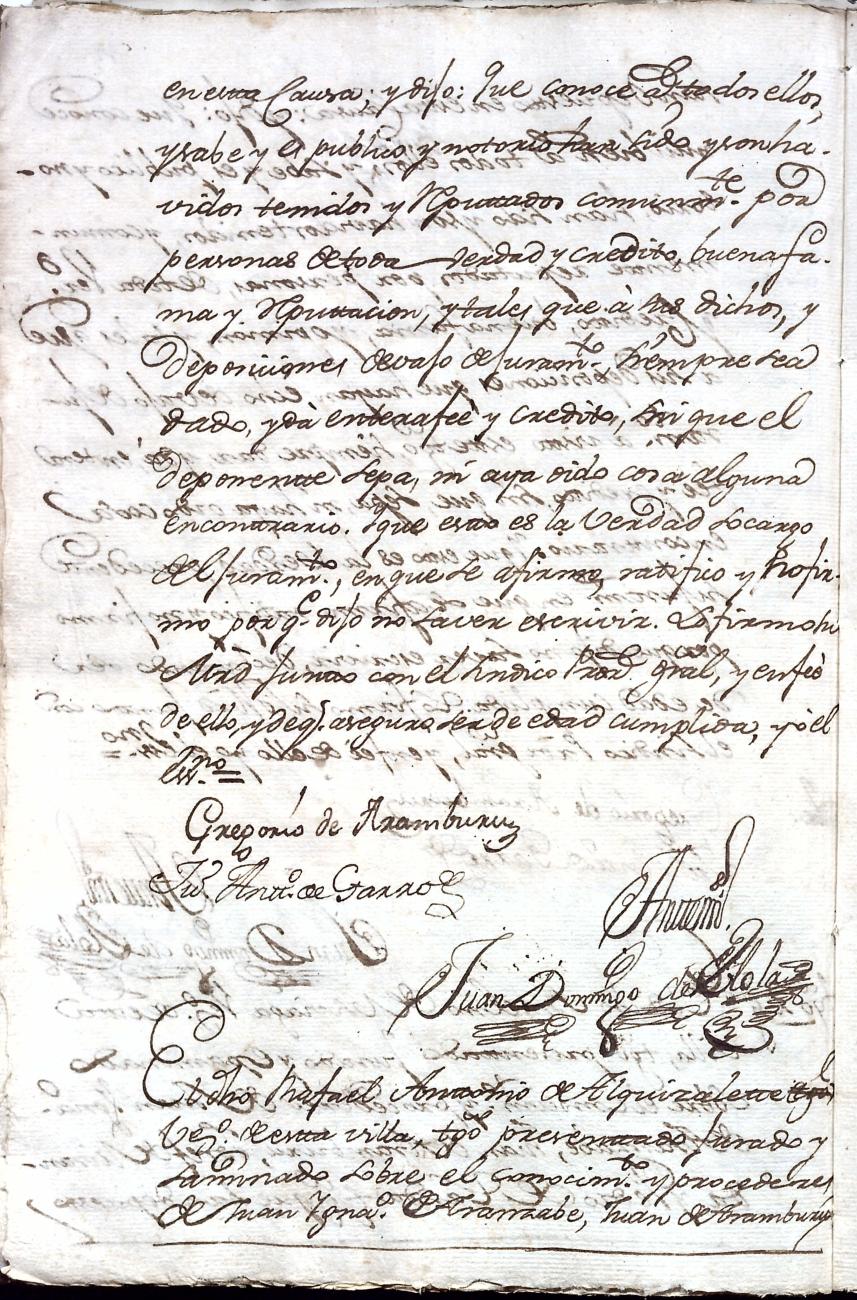 en esta Causa; y dijo: Que conoce á todos ellos,
y sabe y es publico, y notorio han sido y son ha-
vidos tenidos y Reputtados comunmte. por
personas de toda Verdad y credito, buena fa-
ma y Reputtacion, y tales que à sus dichos, y
deposiciones devajo de Juramto. siempre sea
dado, y dà entera feè y credito, sin que el
deponentte sepa, ni aya oido cosa alguna
en conttrario. Y que estto es la Verdad so cargo
del Juramto., en que se afirmo, ratifico y no fir-
mo porqe. dijo no saver escrivir. Lo firmo su
Mrd Juntto con el sindico Pror. gral, y en feè
de ello, y de q. aseguro ser de edad cumplida, yò el
essno.=
Gregorio de Aramburu
Jun. Antto. de Garro
Antemi.
Juan Domingo de Olola
El dho Rafael Anttonio de Alquizalette
Vezo. de estta villa, tgo. presenttado Jurado y
examinado sobre el conocimto. y procederes
de Juan Ignao. de Aranzabe, Juan de Aramburu